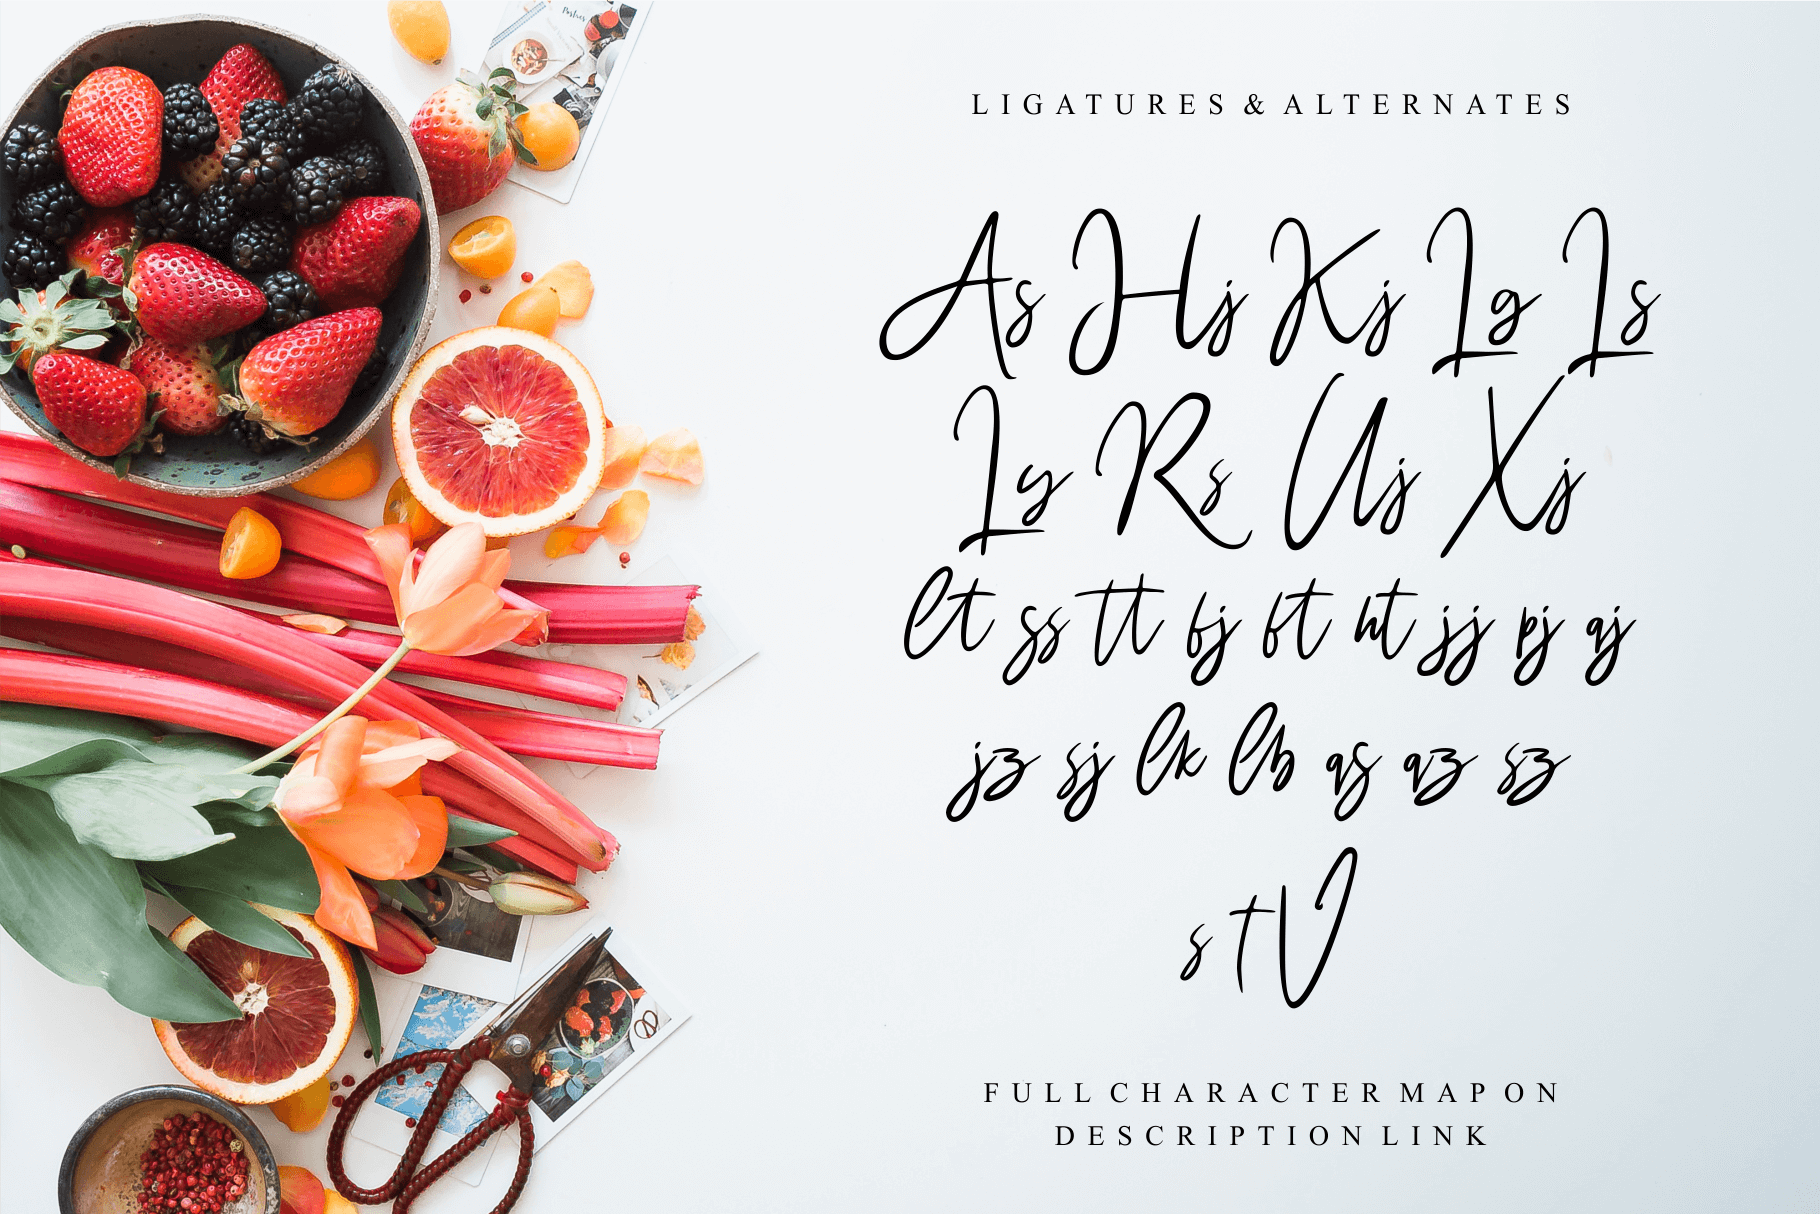 LIGATURES & ALTERNATES
As Hj Kj Lg Ls
Ly Rs Uj Xj
lt ss tt bj bt ht jj pj qj
jz sj lk lb qs qz sz
s t V
FULL CHARACTER MAP ON
DESCRIPTION LINK